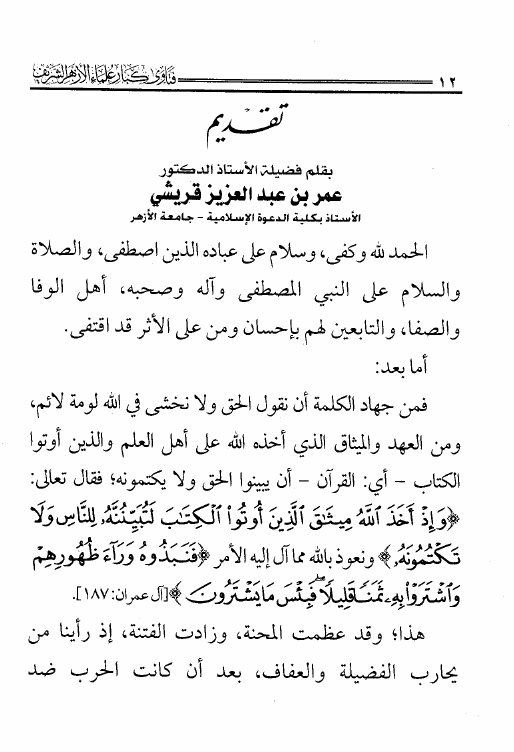 ١٢ فتاوى كبار علماء الأزهر الشريف
تقديم
بقلم فضيلة الأستاذ الدكتور
عمر بن عبد العزيز قريشي
الأستاذ بكلية الدعوة الإسلامية - جامعة الأزهر
الحمد لله وكفى، وسلام على عباده الذين اصطفى، والصلاة
والسلام على النبي المصطفى وآله وصحبه، أهل الوفا
والصفا، والتابعين لهم بإحسان ومن على الأثر قد اقتفى.
أما بعد:
فمن جهاد الكلمة أن نقول الحق ولا نخشى في الله لومة لائم،
ومن العهد والميثاق الذي أخذه الله على أهل العلم والذين أوتوا
الكتاب - أي: القرآن - أن يبينوا الحق ولا يكتمونه؛ فقال تعالى:
﴿وَإِذْ أَخَذَ ٱللَّهُ مِيثَٰقَ ٱلَّذِينَ أُوتُوا۟ ٱلْكِتَٰبَ لَتُبَيِّنُنَّهُۥ لِلنَّاسِ وَلَا
تَكْتُمُونَهُۥ﴾ ونعوذ بالله مما آل إليه الأمر ﴿فَنَبَذُوهُ وَرَآءَ ظُهُورِهِمْ
وَٱشْتَرَوْا۟ بِهِۦ ثَمَنًا قَلِيلًا ۖ فَبِئْسَ مَا يَشْتَرُونَ﴾ [آل عمران: ١٨٧].
هذا؛ وقد عظمت المحنة، وزادت الفتنة، إذ رأينا من
يحارب الفضيلة والعفاف، بعد أن كانت الحرب ضد